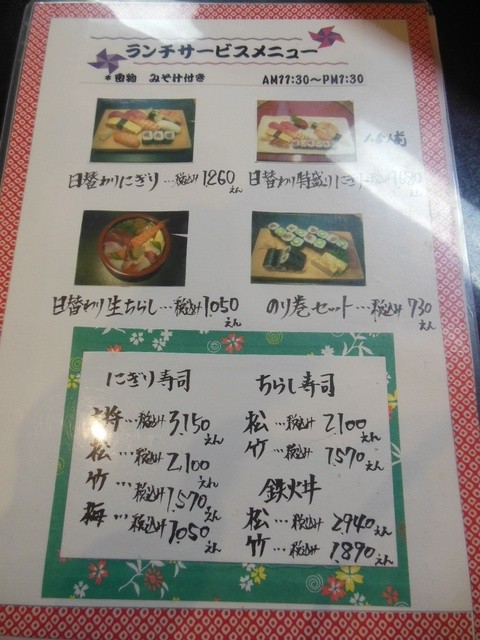 ランチサービスメニュー
＊魚物 みそ汁付き AM11:30～PM1:30
日替わりにぎり…税込み1260えん
日替わり特盛りにぎり…税込み
日替わり生ちらし…税込み1050えん
のり巻セット…税込み730えん
にぎり寿司
…税込み3,150えん
松…税込み2,100えん
竹…税込み1,570えん
梅…税込み1050えん
ちらし寿司
松…税込み2,100えん
竹…税込み1,570えん
鉄火丼
松…税込み2,940えん
竹…税込み1,890えん